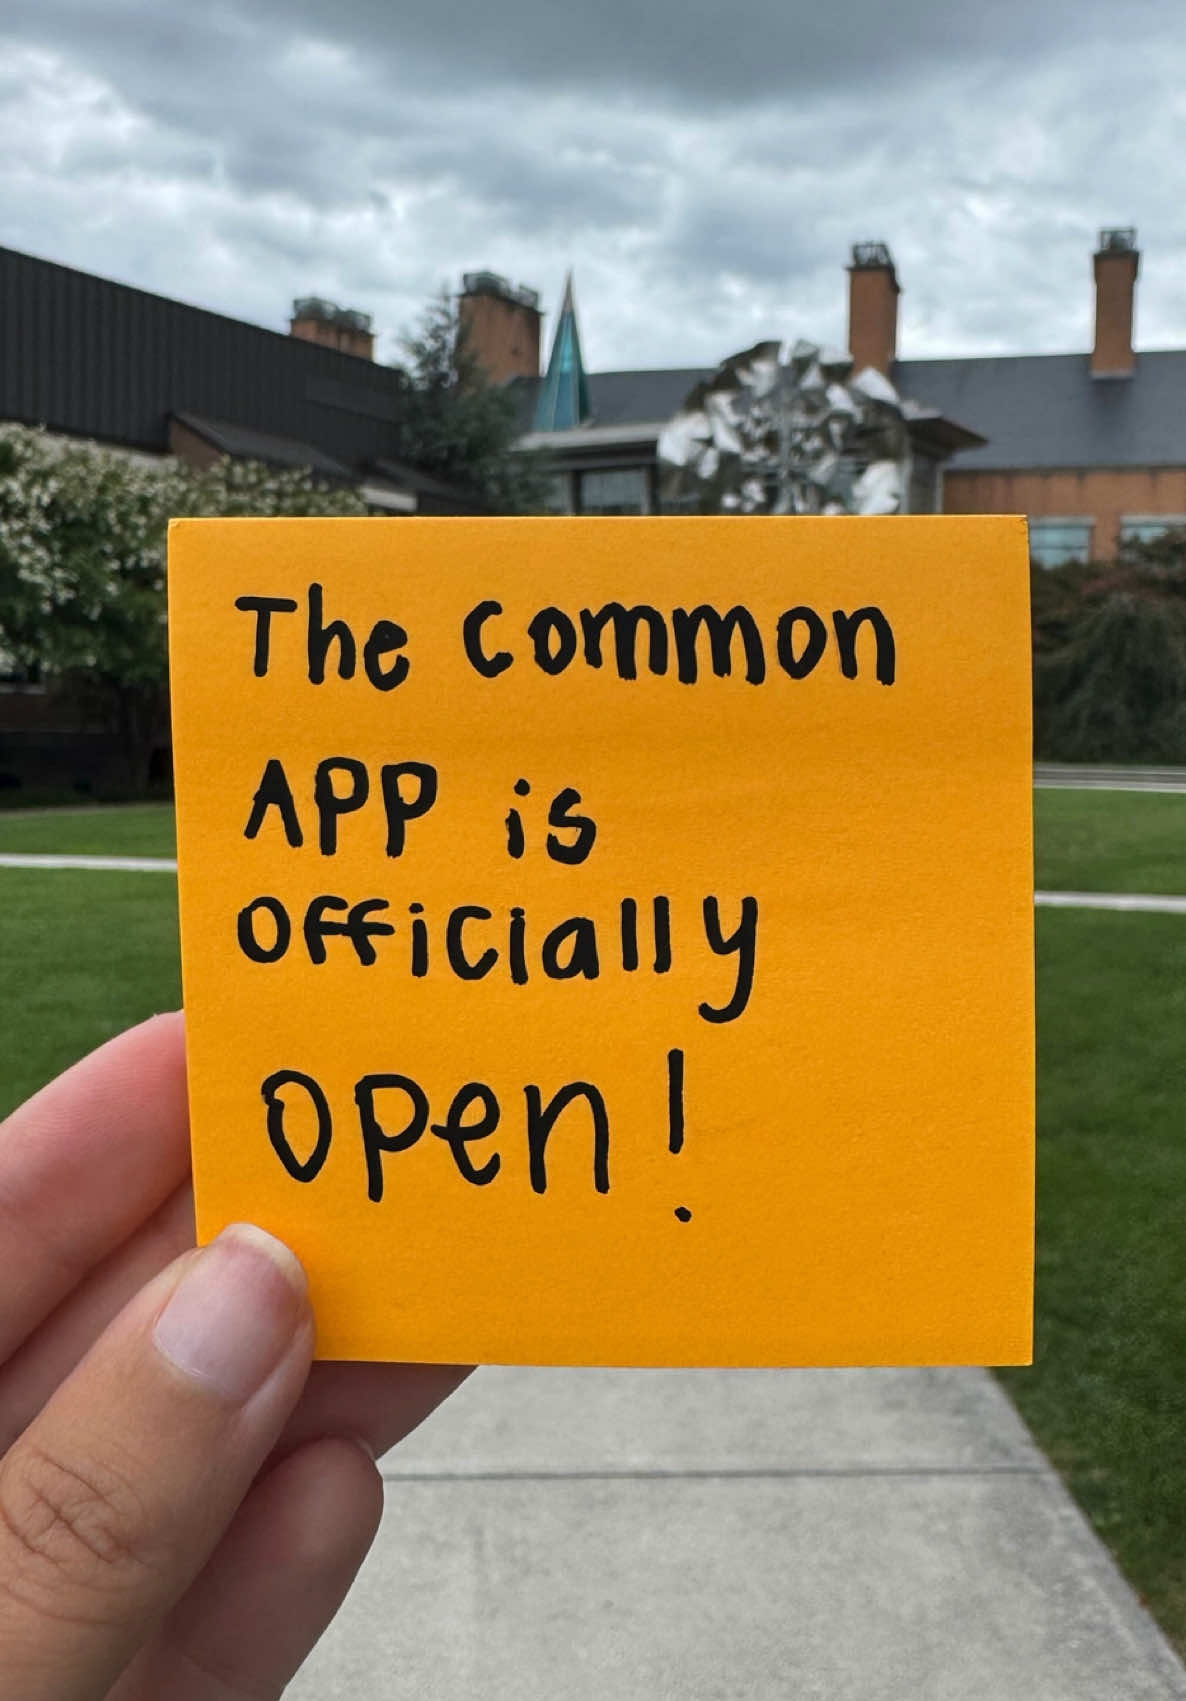 The Common
APP is
officially
open!